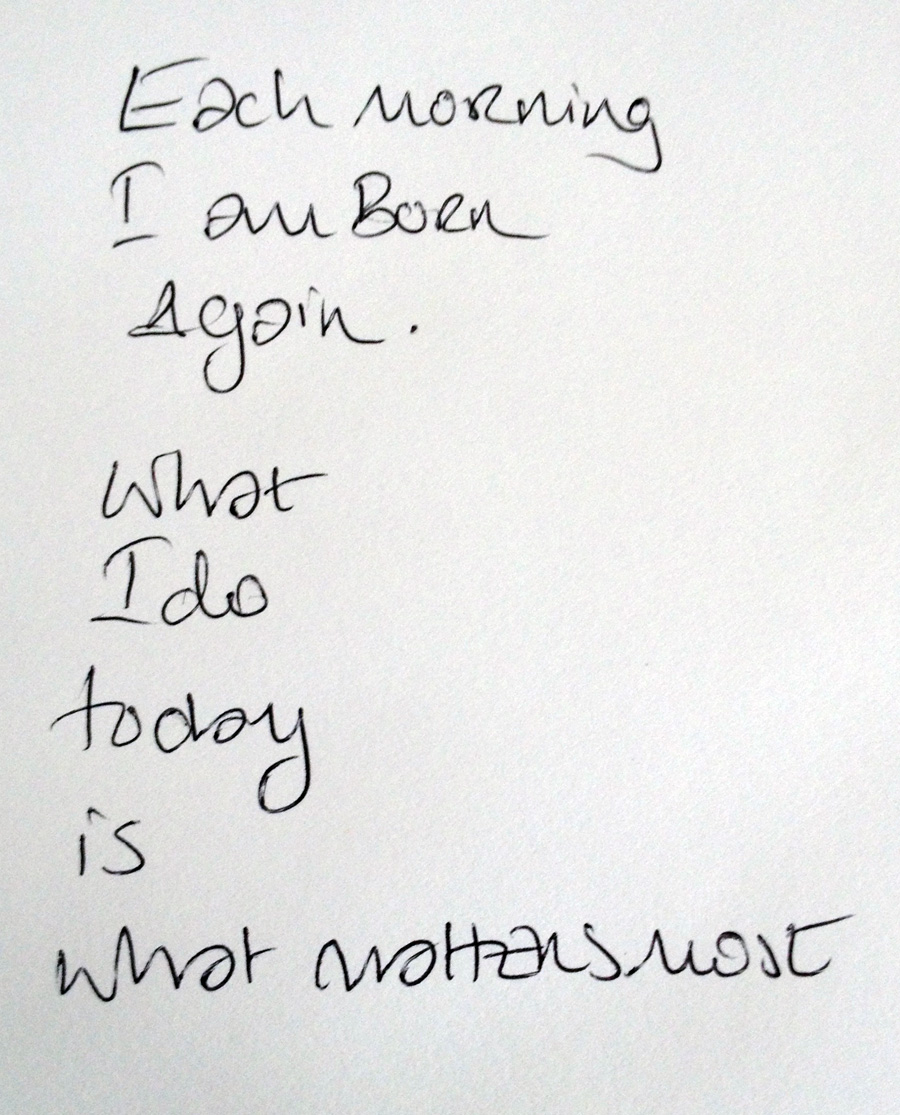 Each morning
I am Born
Again.
What
I do
today
is
what matters most